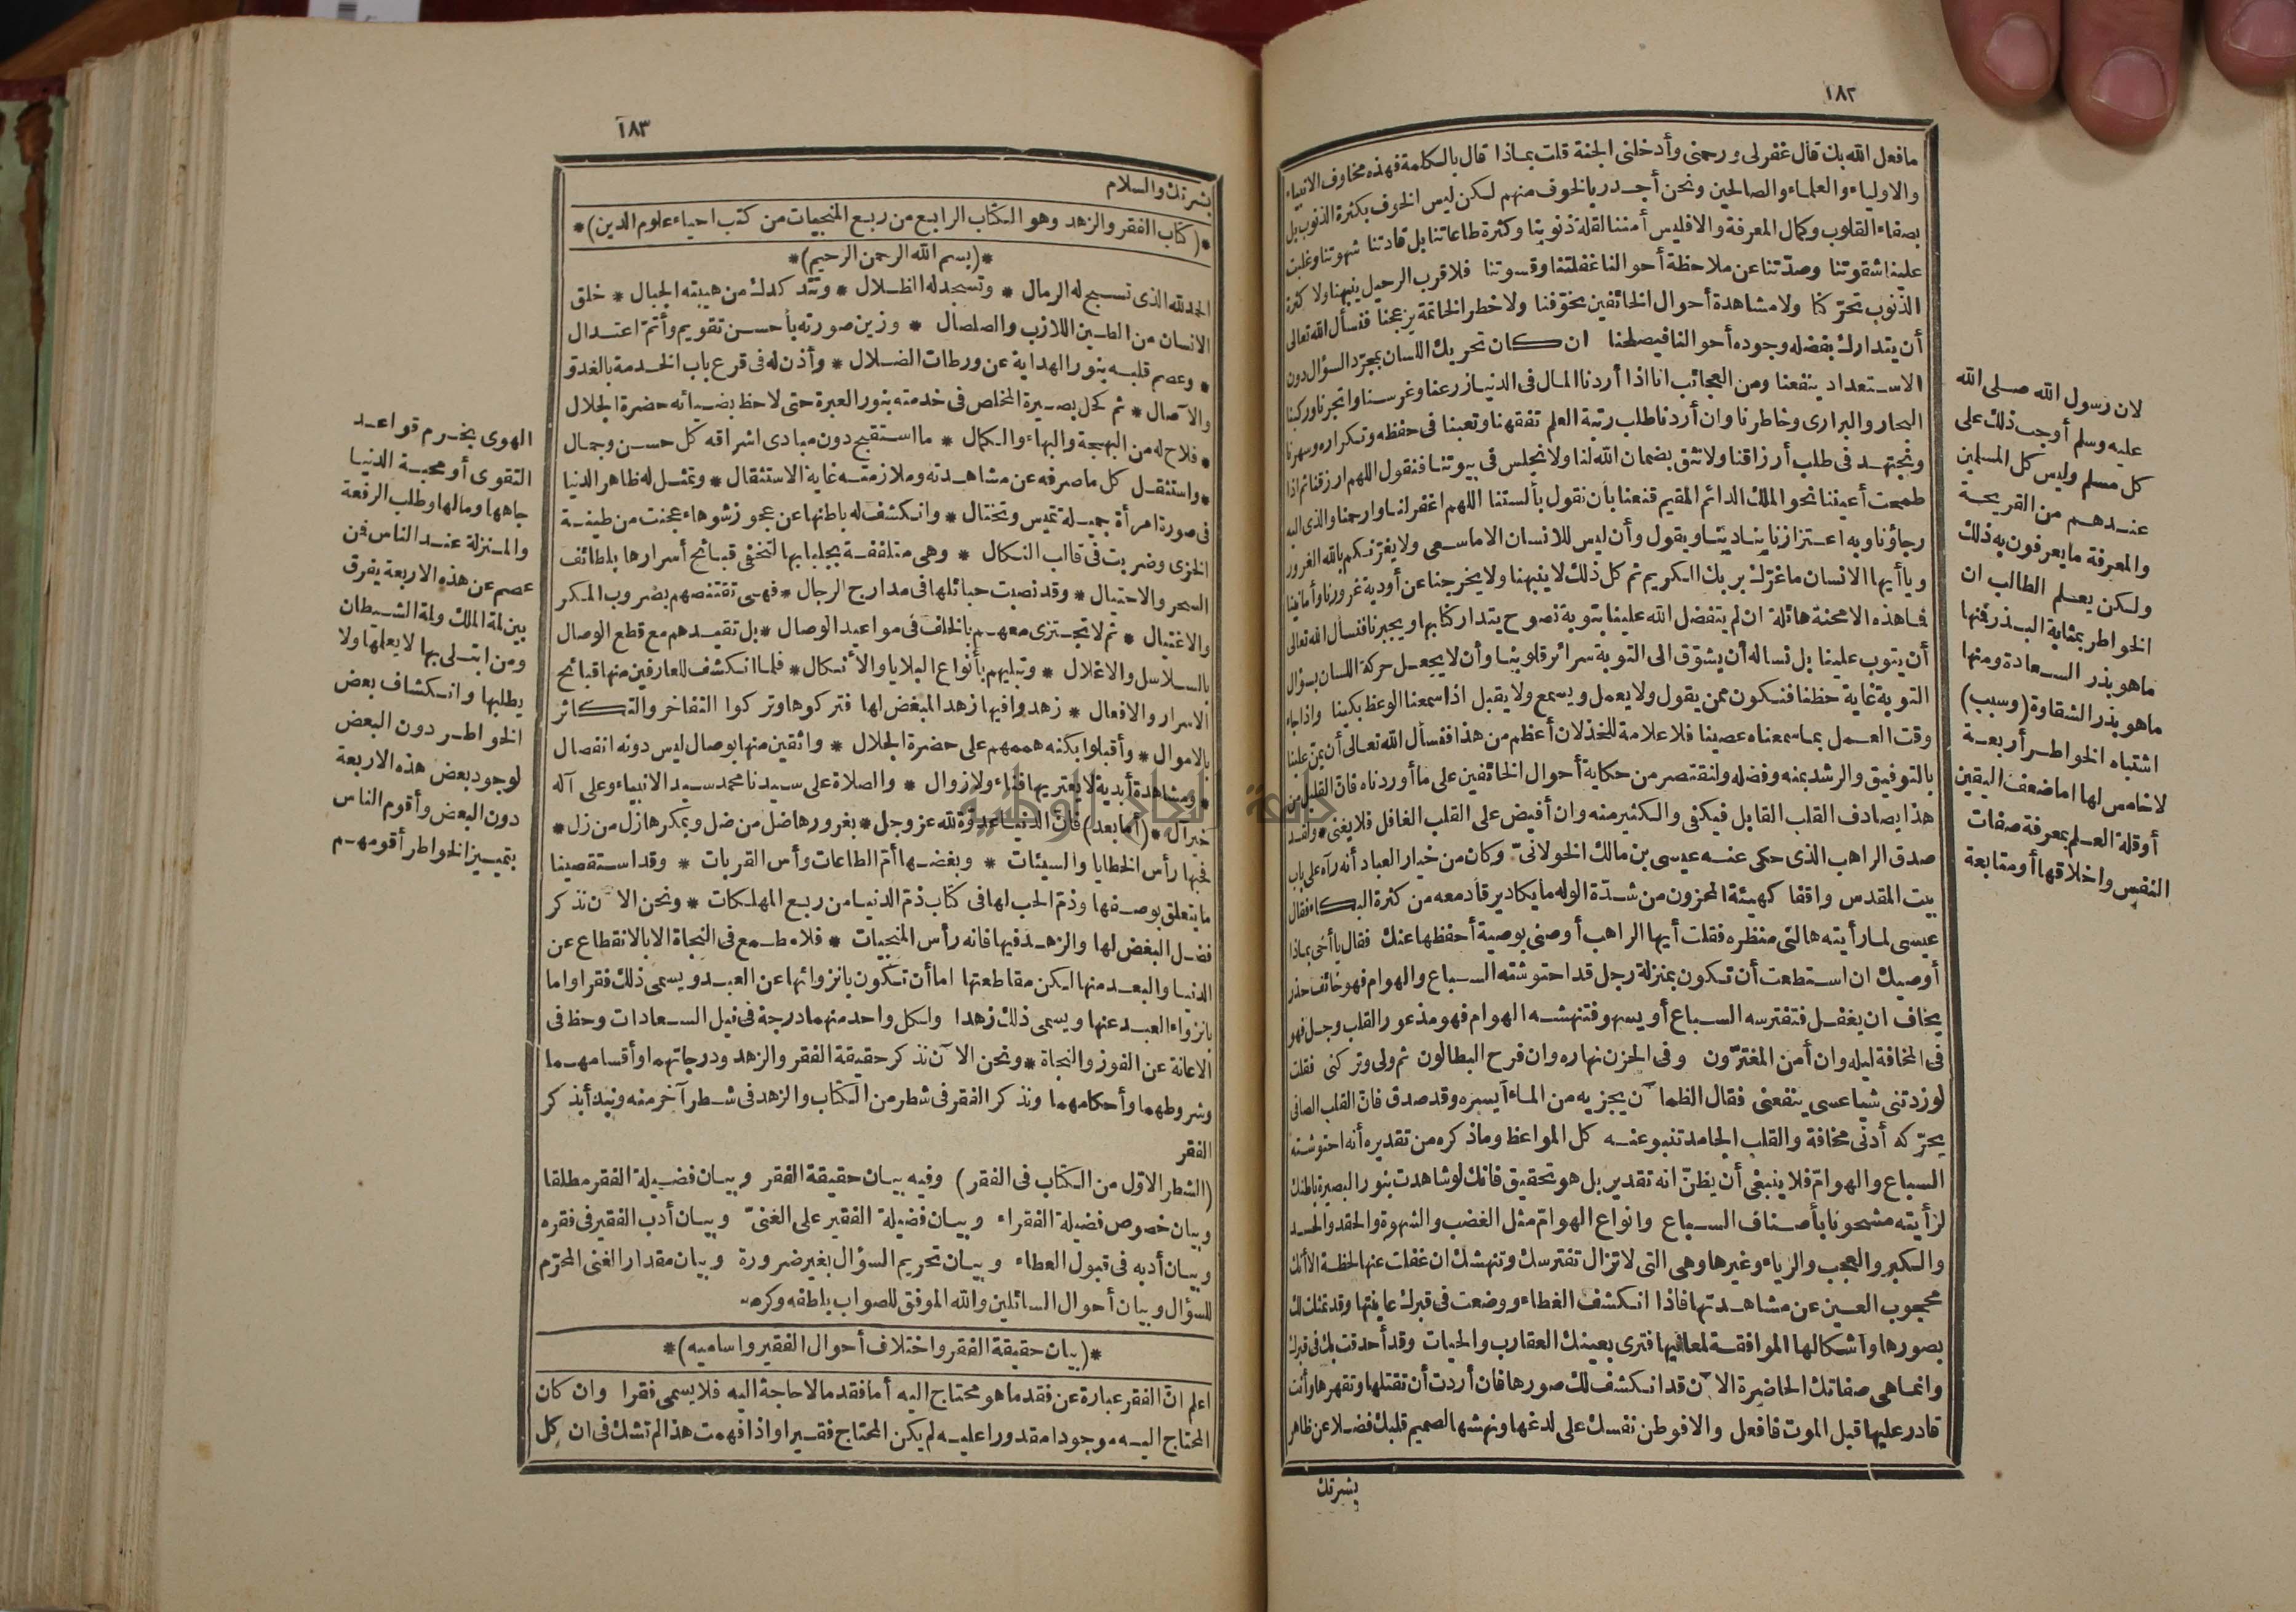 ١٨٢
مافعل الله بك قال غفر لى ورحمنى وأدخلنى الجنة قلت بماذا قال بالكلمة فهذه مخاوف الانبياء
والاولياء والعلماء والصالحين ونحن أجدر بالخوف منهم لكن ليس الخوف بكثرة الذنوب بل
بصفاء القلوب وكمال المعرفة والا فليس أمننا لقلة ذنوبنا وكثرة طاعاتنا بل قادتنا شهوتنا وغلبت
علينا شقوتنا وصدّتنا عن ملاحظة أحوالنا غفلتنا وقسوتنا فلا قرب الرحيل ينبهنا ولا كثرة
الذنوب تحرّكنا ولا مشاهدة أحوال الخائفين تخوّفنا ولا خطر الخاتمة يزعجنا فنسأل الله تعالى
أن يتدارك بفضله وجوده أحوالنا فيصلحنا ان كان تحريك اللسان بمجرّد السؤال دون
الاستعداد ينفعنا ومن العجائب انا اذا أردنا المال فى الدنيا زرعنا وغرسنا واتجرنا وركبنا
البحار والبرارى وخاطرنا وان أردنا طلب رتبة العلم تفقهنا وتعبنا فى حفظه وتكراره وسهرنا
ونجتهد فى طلب أرزاقنا ولا نثق بضمان الله لنا ولا نجلس فى بيوتنا فنقول اللهم ارزقنا ثم اذا
طمحت أعيننا نحو الملك الدائم المقيم قنعنا بأن نقول بألسنتنا اللهم اغفر لنا وارحمنا والذى اليه
رجاؤنا وبه اعتزازنا ينادينا ويقول وأن ليس للانسان الا ماسعى ولا يغرّنكم بالله الغرور
ويا أيها الانسان ماغرّك بربك الكريم ثم كل ذلك لا ينبهنا ولا يخرجنا عن أودية غرورنا وأمانينا
فما هذه الا محنة هائلة ان لم يتفضل الله علينا بتوبة نصوح يتداركنا بها ويجبرنا فنسأل الله تعالى
أن يتوب علينا بل نسأله أن يشوّق الى التوبة سرائر قلوبنا وأن لا يجعل حركة اللسان بسؤال
التوبة غاية حظنا فنكون ممن يقول ولا يعمل ويسمع ولا يقبل اذا سمعنا الوعظ بكينا واذا جاء
وقت العمل بما سمعناه عصينا فلا علامة للخذلان أعظم من هذا فنسأل الله تعالى أن يمنّ علينا
بالتوفيق والرشد بمنه وفضله ولنقتصر من حكاية أحوال الخائفين على ما أوردناه فانّ القليل من
هذا يصادف القلب القابل فيكفى والكثير منه وان أفيض على القلب الغافل فلا يغنى * ولقد
صدق الراهب الذى حكى عنه عيسى بن مالك الخولانىّ وكان من خيار العباد أنه رآه على باب
بيت المقدس واقفا كهيئة المحزون من شدّة الوله ما يكاد يرقأ دمعه من كثرة البكاء فقال
عيسى لما رأيته هالنى منظره فقلت أيها الراهب أوصنى بوصية أحفظها عنك فقال يا أخى بماذا
أوصيك ان استطعت أن تكون بمنزلة رجل قد احتوشته السباع والهوام فهو خائف حذر
يخاف ان يغفل فتفترسه السباع أو يسهو فتنهشه الهوام فهو مذعور القلب وجل فهو
فى المخافة ليله وان أمن المغترّون وفى الحزن نهاره وان فرح البطالون ثم ولى وتركنى فقلت
لو زدتنى شيأ عسى ينفعنى فقال الظمآن يجزيه من الماء أيسره وقد صدق فانّ القلب الصافى
يحرّكه أدنى مخافة والقلب الجامد تنبو عنه كل المواعظ وماذكره من تقديره أنه احتوشته
السباع والهوامّ فلا ينبغى أن يظنّ انه تقدير بل هو تحقيق فانك لو شاهدت بنور البصيرة باطنك
لرأيته مشحونا بأصناف السباع وانواع الهوامّ مثل الغضب والشهوة والحقد والحسد
والكبر والعجب والرياء وغيرها وهى التى لا تزال تفترسك وتنهشك ان غفلت عنها لحظة الا أنك
محجوب العين عن مشاهدتها فاذا انكشف الغطاء ووضعت فى قبرك عاينتها وقد تمثلت لك
بصورها وأشكالها الموافقة لمعانيها فترى بعينك العقارب والحيات وقد أحدقت بك فى قبرك
وانما هى صفاتك الحاضرة الآن قد انكشف لك صورها فان أردت أن تقتلها وتقهرها وأنت
قادر عليها قبل الموت فافعل والا فوطن نفسك على لدغها ونهشها لصميم قلبك فضلا عن ظاهر
بشرتك
لان رسول الله صلى الله
عليه وسلم أوجب ذلك على
كل مسلم وليس كل المسلمين
عندهم من القريحة
والمعرفة ما يعرفون به ذلك
ولكن يعلم الطالب ان
الخواطر بمثابة البذر فمنها
ماهو بذر السعادة ومنها
ماهو بذر الشقاوة (وسبب)
اشتباه الخواطر أربعة
لا خامس لها اما ضعف اليقين
أو قلة العلم بمعرفة صفات
النفس واخلاقها أو متابعة
١٨٣
بشرتك والسلام
*(كتاب الفقر والزهد وهو الكتاب الرابع من ربع المنجيات من كتب احياء علوم الدين)*
*(بسم الله الرحمن الرحيم)*
الحمد لله الذى تسبح له الرمال * وتسجد له الظلال * وتتدكدك من هيبته الجبال * خلق
الانسان من الطين اللازب والصلصال * وزين صورته بأحسن تقويم وأتمّ اعتدال
* وعصم قلبه بنور الهداية عن ورطات الضلال * وأذن له فى قرع باب الخدمة بالغدوّ
والآصال * ثم كحل بصيرة المخلص فى خدمته بنور العبرة حتى لاحظ بضيائه حضرة الجلال
* فلاح له من البهجة والبهاء والكمال * ما استقبح دون مبادى اشراقه كل حسن وجمال
* واستثقل كل ما صرفه عن مشاهدته وملازمته غاية الاستثقال * وتمثل له ظاهر الدنيا
فى صورة امرأة جميلة تميس وتختال * وانكشف له باطنها عن عجوز شوهاء عجنت من طينة
الخزى وضربت فى قالب النكال * وهى متلففة بجلبابها لتخفى قبائح أسرارها بلطائف
السحر والاحتيال * وقد نصبت حبائلها فى مدارج الرجال * فهى تقتنصهم بضروب المكر
والاغتيال * ثم لا تجتزى معهم بالخلف فى مواعيد الوصال * بل تقيدهم مع قطع الوصال
بالسلاسل والاغلال * وتبليهم بأنواع البلايا والأنكال * فلما انكشف للعارفين منها قبائح
الاسرار والافعال * زهدوا فيها زهد المبغض لها فتركوها وتركوا التفاخر والتكاثر
بالاموال * وأقبلوا بكنه هممهم على حضرة الجلال * واثقين منها بوصال ليس دونه انفصال
* ومشاهدة أبدية لا يعتريها فناء ولا زوال * والصلاة على سيدنا محمد سيد الانبياء وعلى آله
خير آل * (أما بعد) فانّ الدنيا عدوّة لله عز وجل * بغرورها ضل من ضل وبمكرها زل من زل *
فحبها رأس الخطايا والسيئات * وبغضها أمّ الطاعات وأس القربات * وقد استقصينا
ما يتعلق بوصفها وذمّ الحب لها فى كتاب ذمّ الدنيا من ربع المهلكات * ونحن الآن نذكر
فضل البغض لها والزهد فيها فانه رأس المنجيات * فلا مطمع فى النجاة الا بالانقطاع عن
الدنيا والبعد منها لكن مقاطعتها اما أن تكون بانزوائها عن العبد ويسمى ذلك فقرا واما
بانزواء العبد عنها ويسمى ذلك زهدا ولكل واحد منهما درجة فى نيل السعادات وحظ فى
الاعانة عن الفوز والنجاة * ونحن الآن نذكر حقيقة الفقر والزهد ودرجاتهما وأقسامهما
وشروطهما وأحكامهما ونذكر الفقر فى شطر من الكتاب والزهد فى شطر آخر منه ونبدأ بذكر
الفقر
(الشطر الاوّل من الكتاب فى الفقر) وفيه بيان حقيقة الفقر وبيان فضيلة الفقر مطلقا
وبيان خصوص فضيلة الفقراء وبيان فضيلة الفقير على الغنىّ وبيان أدب الفقير فى فقره
وبيان أدبه فى قبول العطاء وبيان تحريم السؤال بغير ضرورة وبيان مقدار الغنى المحرّم
للسؤال وبيان أحوال السائلين والله الموفق للصواب بلطفه وكرمه
*(بيان حقيقة الفقر واختلاف أحوال الفقير واساميه)*
اعلم انّ الفقر عبارة عن فقد ما هو محتاج اليه أما فقد ما لا حاجة اليه فلا يسمى فقرا وان كان
المحتاج اليه موجودا مقدورا عليه لم يكن المحتاج فقيرا واذا فهمت هذا لم تشك فى ان كل
الهوى بخرم قواعد
التقوى أو محبة الدنيا
جاهها ومالها وطلب الرفعة
والمنزلة عند الناس فمن
عصم عن هذه الاربعة يفرق
بين لمة الملك ولمة الشيطان
ومن ابتلى بها لا يعلمها ولا
يطلبها وانكشاف بعض
الخواطر دون البعض
لوجود بعض هذه الاربعة
دون البعض وأقوم الناس
بتمييز الخواطر أقومهم